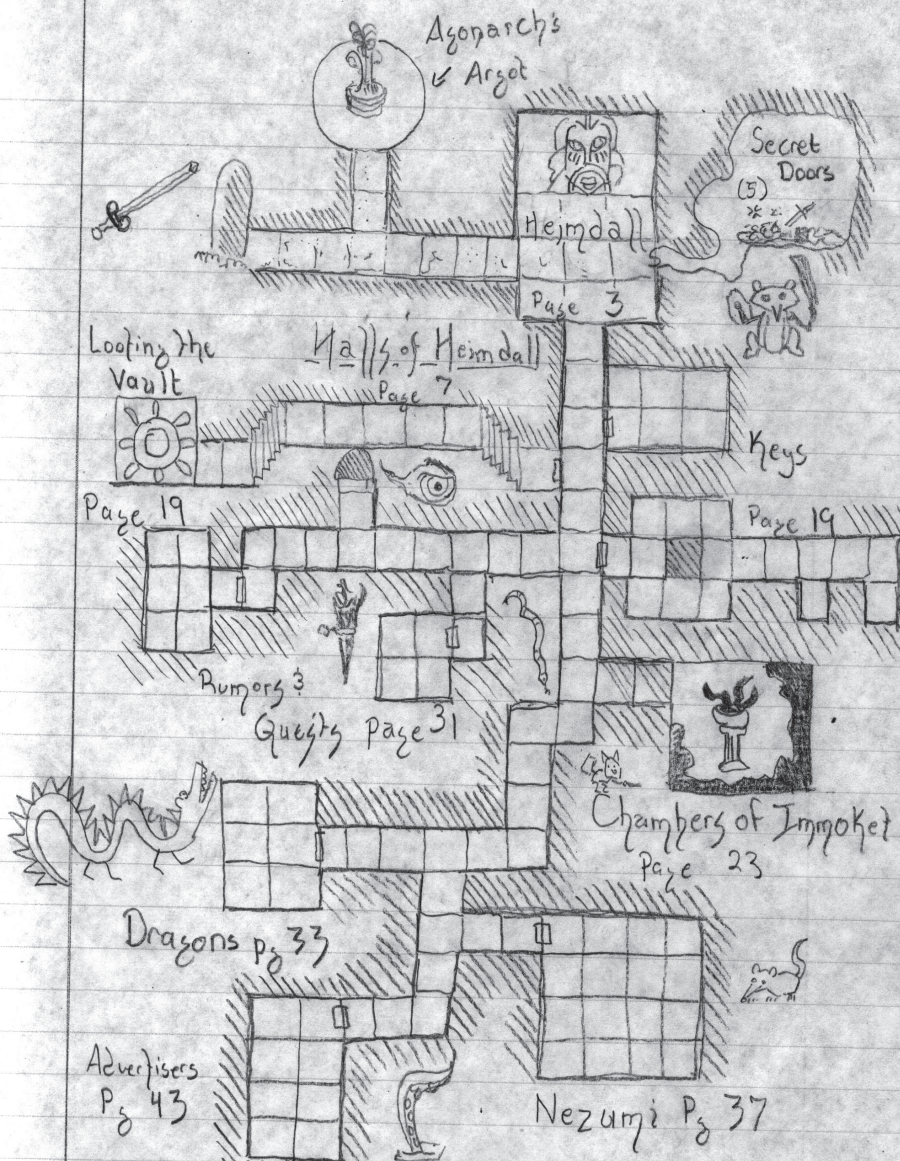 Agonarch's
Argot
Secret
Doors
(5)
Heimdall
Page 3
Looting the
Vault
Halls of Heimdall
Page 7
Keys
Page 19
Page 19
Rumors &
Quests Page 31
Chambers of Immoket
Page 23
Dragons pg 33
Advertisers
Pg 43
Nezumi Pg 37